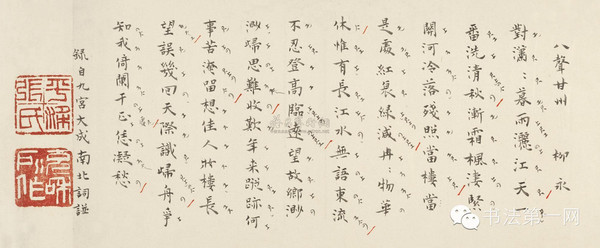 八聲甘州 柳永
對瀟〻暮雨灑江天一
番洗清秋漸霜楓淒緊
關河冷落殘照當樓當
是處紅衰綠減冉〻物華
休惟有長江水無語東流
不忍登高臨遠望故鄉渺
渺歸思難收歎年來蹤跡何
事苦淹留想佳人妝樓長
望誤幾回天際識歸舟爭
知我倚闌干正恁凝愁
錄自九宮大成南北詞譜
張氏
书法第一网